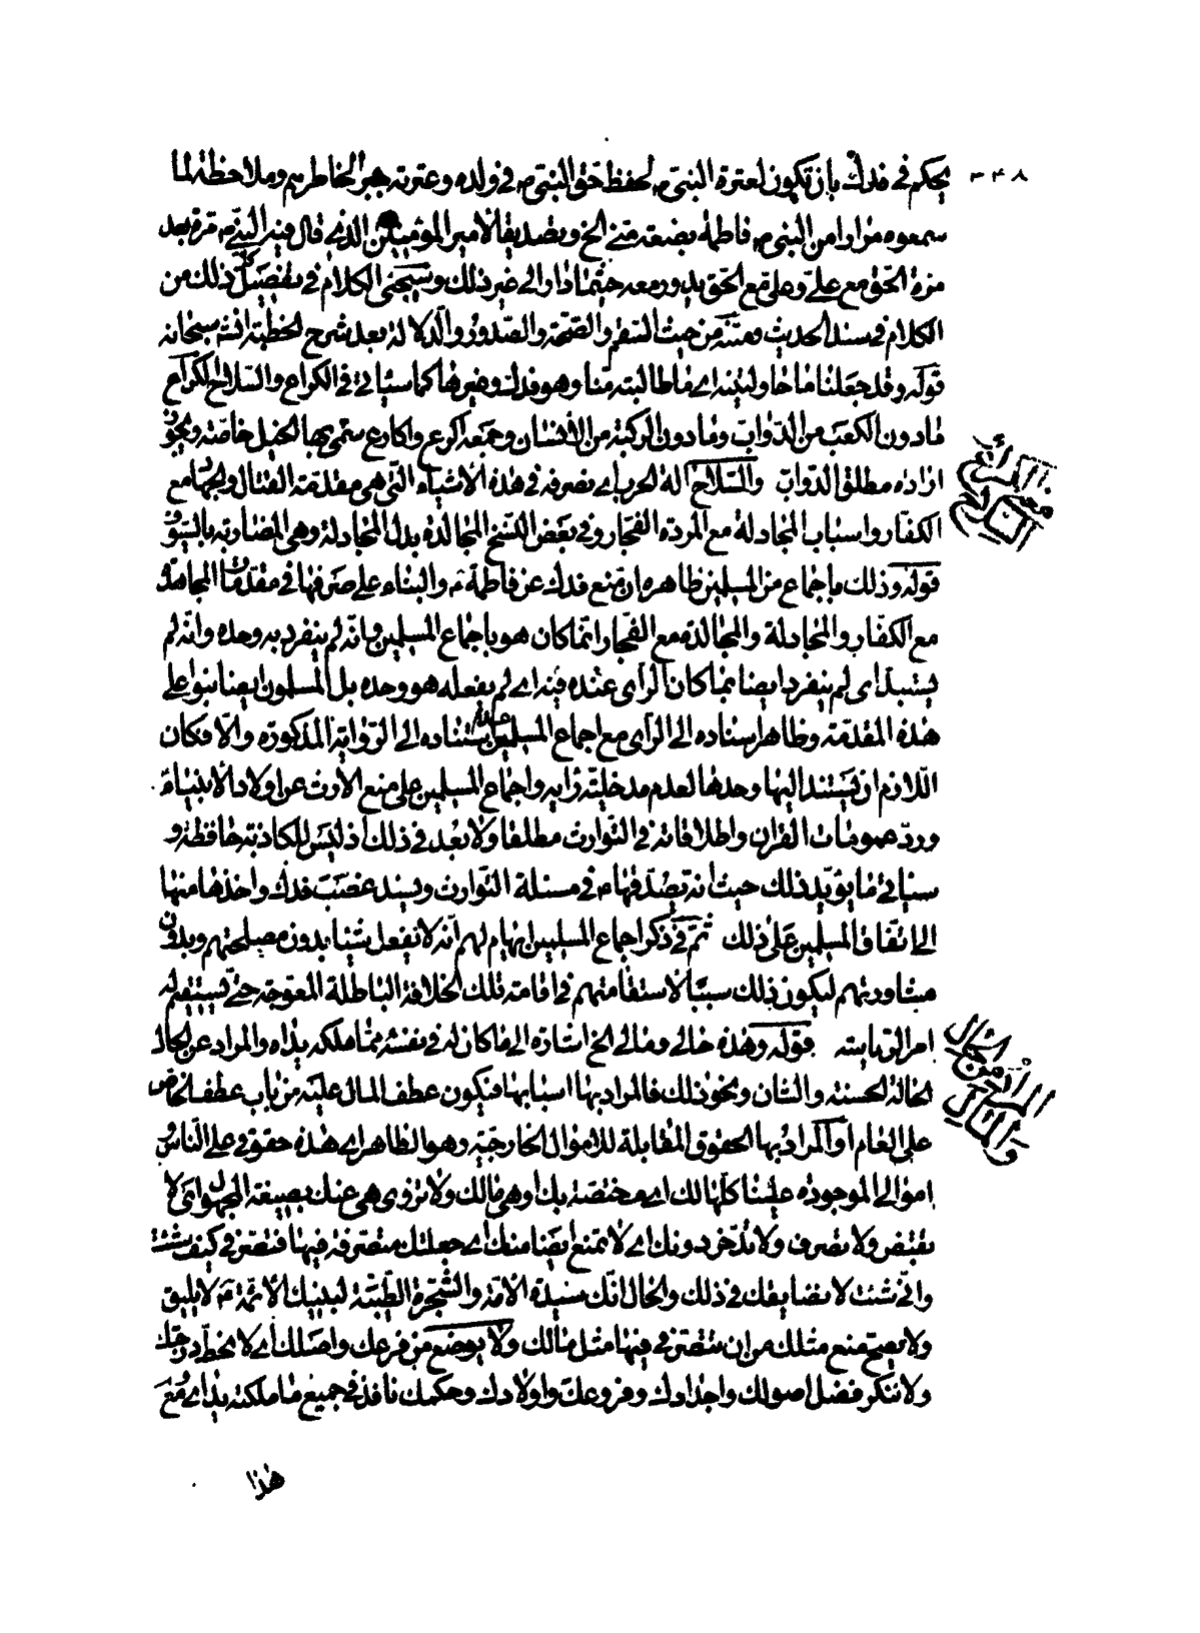 ٣٤٨
يحكم في فدك بان تكون لعترة النبي ص لحفظ حق النبي ص في ولده وعترته جبرا لخاطرهم وملاحظة لما
سمعوه مرارا من النبي ص فاطمة بضعة مني الخ وتصديقا لامير المؤمنين الذي قال فيه النبي ص مرة بعد
مرة الحق مع علي وعلي مع الحق يدور معه حيثما دار الى غير ذلك وسيجئ الكلام في تفصيل كل ذلك من
الكلام في سند الحديث ومتنه من حيث السقم والصحة والصدور والدلالة بعد شرح الخطبة انش سبحانه
قوله وقد جعلنا ما حاولتيه اي ما طالبته منا وهو فدك وغيرها كما سياتي في الكراع والسلاح الكراع
مادون الكعب من الدواب ومادون الركبة من الانسان وجمعه اكرع واكارع سمى بها الخيل خاصة ويجوز
ارادة مطلق الدواب والسلاح الة الحرب اي نصرفه في هذه الاشياء التي هي مقدمة القتال والجهاد مع
الكفار واسباب المجادلة مع المردة الفجار وفي بعض النسخ المجالدة بدل المجادلة وهي المضاربة بالسيوف
قوله وذلك باجماع من المسلمين ظاهره ان منع فدك عن فاطمة ع والبناء على صرفها في مقدمات المجاهدة
مع الكفار والمجادلة والمجالدة مع الفجار انما كان هو باجماع المسلمين وانه لم ينفرد به وحده وانه لم
يستبد اى لم ينفرد ايضا بما كان الراى عنده فيه اي لم يفعله هو وحده بل المسلمون ايضا بنوا على
هذه المقدمة وظاهر اسناده الى الراى مع اجماع المسلمين عدم استناده الى الرواية المذكورة والا فكان
اللازم ان يستند اليها وحدها لعدم مدخلية رايه واجماع المسلمين على منع الارث عن اولاد الانبياء
وردّ عمومات القران واطلاقاته في التوارث مطلقا ولا بعد في ذلك اذ ليس للكاذب حافظة و
سياتي ما يؤيد ذلك حيث انه يصدّقها ع في مسئلة التوارث ويسند غصب فدك واخذها منها
الى اتفاق المسلمين على ذلك ثم في ذكر اجماع المسلمين ايهام لهم انه لا يفعل شيئا بدون مصلحتهم وبدون
مشاورتهم ليكون ذلك سببا لاستقامتهم في اقامة تلك الخلافة الباطلة المعوجة حتى يستقيم له
امر الرياسة قوله وهذه حالي ومالي الخ اشارة الى ما كان له في نفسه مما ملكه يداه والمراد عن الحال
الحالة الحسنة والشان ونحو ذلك فالمراد بها اسبابها فيكون عطف المال عليه من باب عطف الخاص
على العام او المراد بها الحقوق المقابلة للاموال الخارجية وهو الظاهر اي هذه حقوقي على الناس و
اموالي الموجودة علينا كلها لك اي مختصة بك وهي مالك ولا تزوى هي عنك بصيغة المجهول اى لا
تقبض ولا تصرف ولا تدّخر دونك اي لا تمنع ايضا منك اي جعلتك متصرفة فيها فتصرفي كيف شئت
وانّى شئت لا نضايقك في ذلك والحال انك سيدة الامة والشجرة الطيبة لبنيك الائمة ع لا يليق
ولا يصح منع مثلك من ان تتصرفي فيها مثل مالك ولا يوضع من فرعك واصلك اي لا نحطّ درجتك
ولا ننكر فضل اصولك واجدادك وفروعك واولادك وحكمك نافذ في جميع ما ملكته يداي مع
هذا
الكراع
معنى
السلاح
المراد من الحال
والمال